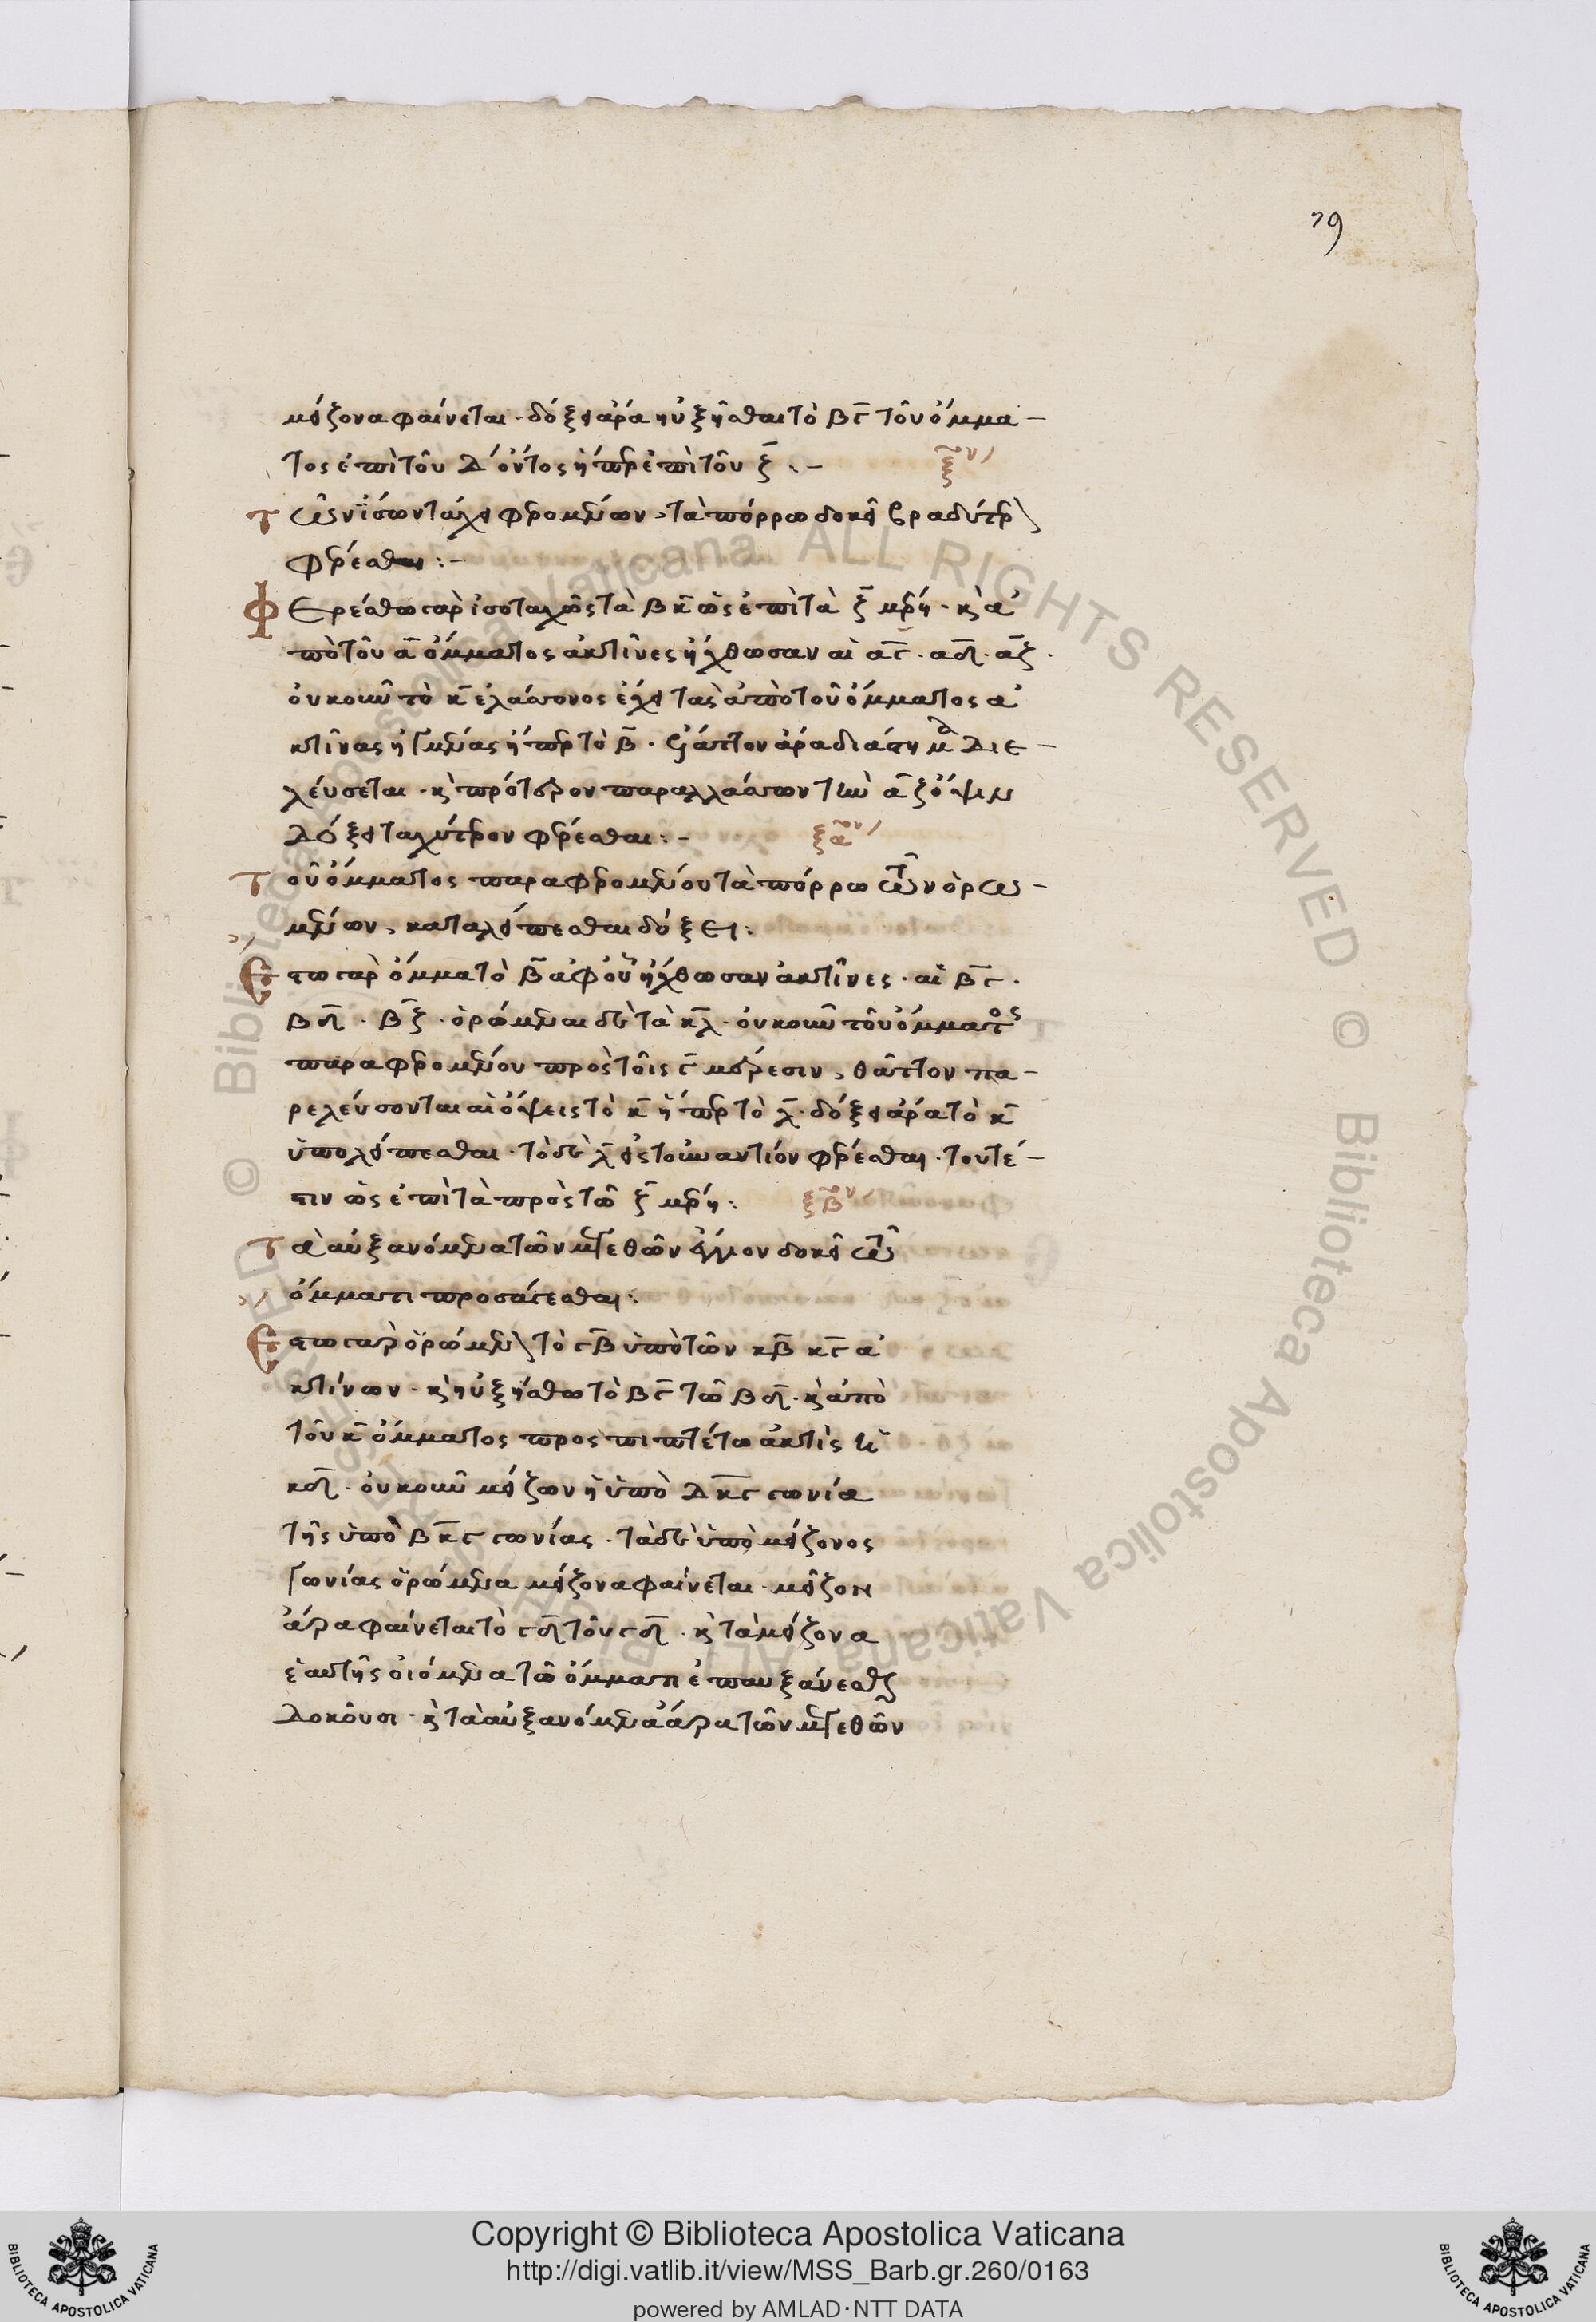 79
μείζονα φαίνεται· δόξει ἄρα ηὐξῆσθαι τὸ βγ τοῦ ὄμμα-
τος ἐπὶ τοῦ δ ὄντος ἤπερ ἐπὶ τοῦ ζ :-
ξον
Τῶν ἴσω τάχει φερομένων, τὰ πόρρω δοκεῖ βραδύτερον
φέρεσθαι :-
Φερέσθω γὰρ ἰσοταχῶς τὰ β κ ὡς ἐπὶ τὰ ζ μέρη· καὶ ἀ
πὸ τοῦ α ὄμματος ἀκτῖνες ἤχθωσαν αἱ αγ· αδ· αζ·
οὐκοῦν τὸ κ ἐλάσσονος ἔχει τὰς ἀπὸ τοῦ ὄμματος ἀ
κτῖνας ἠγμένας ἤπερ τὸ β· ἔλαττον ἄρα διάστημα διε-
λεύσεται· καὶ πρότερον παραλλάσσον τὴν αζ ὄψιν
δόξει ταχύτερον φέρεσθαι :-
ξαον
Τοῦ ὄμματος παραφερομένου τὰ πόρρω τῶν ὁρω-
μένων, καταλείπεσθαι δόξει :
Ἔστω γὰρ ὄμμα τὸ β ἀφ' οὗ ἤχθωσαν ἀκτῖνες· αἱ βγ·
βδ· βζ· ὁρώμεναι δὲ τὰ κ λ· οὐκοῦν τοῦ ὄμματος
παραφερομένου πρὸς τοῖς γ μέρεσιν, θᾶττον πα-
ρελεύσονται αἱ ὄψεις τὸ κ ἤπερ τὸ λ· δόξει ἄρα τὸ κ
ὑπολείπεσθαι· τὸ δὲ λ εἰς τοὐναντίον φέρεσθαι· τουτέ-
στιν ὡς ἐπὶ τὰ πρὸς τῶ ζ μέρη :
ξβον
Τὰ αὐξανόμενα τῶν μεγεθῶν ἔγγιον δοκεῖ τῶ
ὄμματι προσάγεσθαι :
Ἔστω γὰρ ὁρώμενον τὸ γβ ὑπὸ τῶν κβ κγ ἀ
κτίνων· καὶ ηὐξήσθω τὸ βγ τῶ βδ· καὶ ἀπὸ
τοῦ κ ὄμματος προσπιπτέτω ἀκτὶς ἡ
κδ· οὐκοῦν μείζων ἡ ὑπὸ δκγ γωνία
τῆς ὑπὸ βκγ γωνίας· τὰ δὲ ὑπὸ μείζονος
γωνίας ὁρώμενα μείζονα φαίνεται· μεῖζον
ἄρα φαίνεται τὸ γδ τοῦ γδ· καὶ τὰ μείζονα
ἑαυτῆς οἰόμενα τῶ ὄμματι ἐπαυξάνεσθαι
δοκοῦσι· καὶ τὰ αὐξανόμενα ἄρα τῶν μεγεθῶν
Copyright © Biblioteca Apostolica Vaticana
http://digi.vatlib.it/view/MSS_Barb.gr.260/0163
powered by AMLAD·NTT DATA